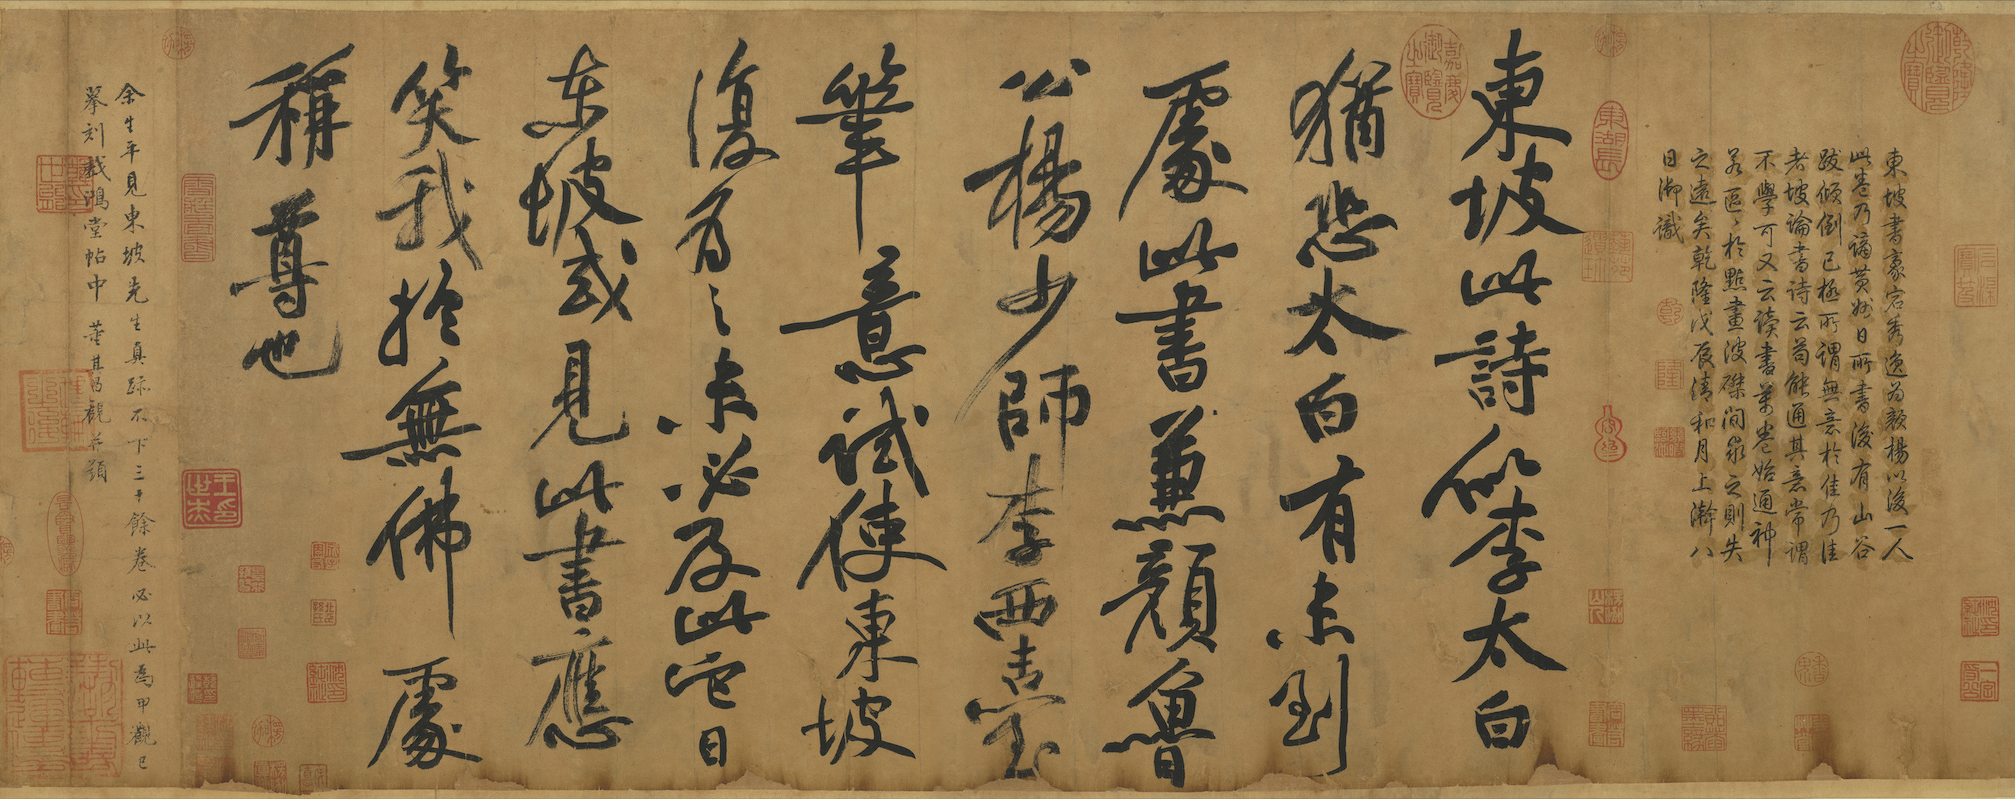 東坡書豪宕秀逸為顏楊以後一人
此卷乃謫黃州日所書後有山谷
跋傾倒已極所謂無意於佳乃佳
者坡論書詩云苟能通其意常謂
不學可又云讀書萬卷始通神
若區々於點畫波磔間求之則失
之遠矣乾隆戊辰清和月上澣八
日御識
東坡此詩似李太白
猶恐太白有未到
處此書兼顏魯
公楊少師李西臺
筆意試使東坡
復為之未必及此它日
東坡或見此書應
笑我於無佛處
稱尊也
余生平見東坡先生真跡不下三十餘卷必以此為甲觀已
摹刻戲鴻堂帖中 董其昌觀并題
嘉慶御覽之寶
乾隆御覽之寶
東湖長